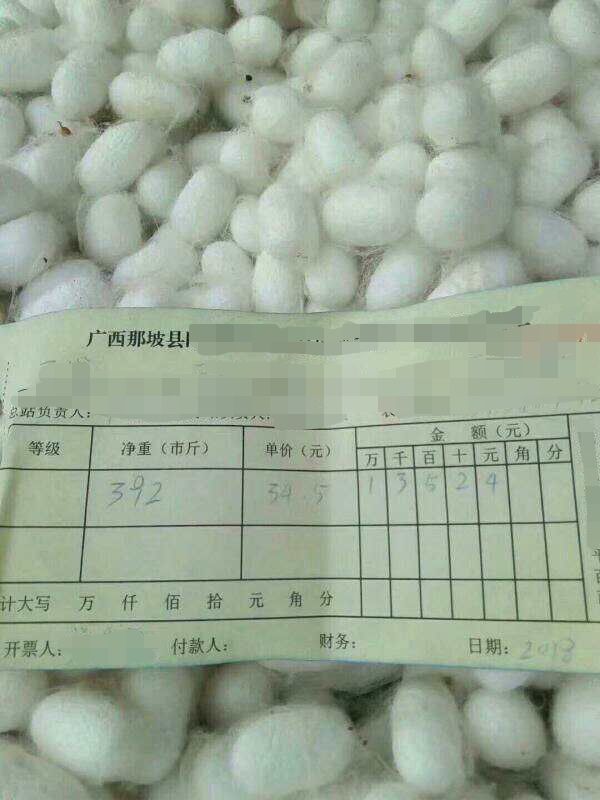 广西那坡县
总站负责人：
等级 净重（市斤） 单价（元） 金额（元）
万 千 百 十 元 角 分
392 34.5 1 3 5 2 4
计大写 万 仟 佰 拾 元 角 分
开票人： 付款人： 财务： 日期：2018